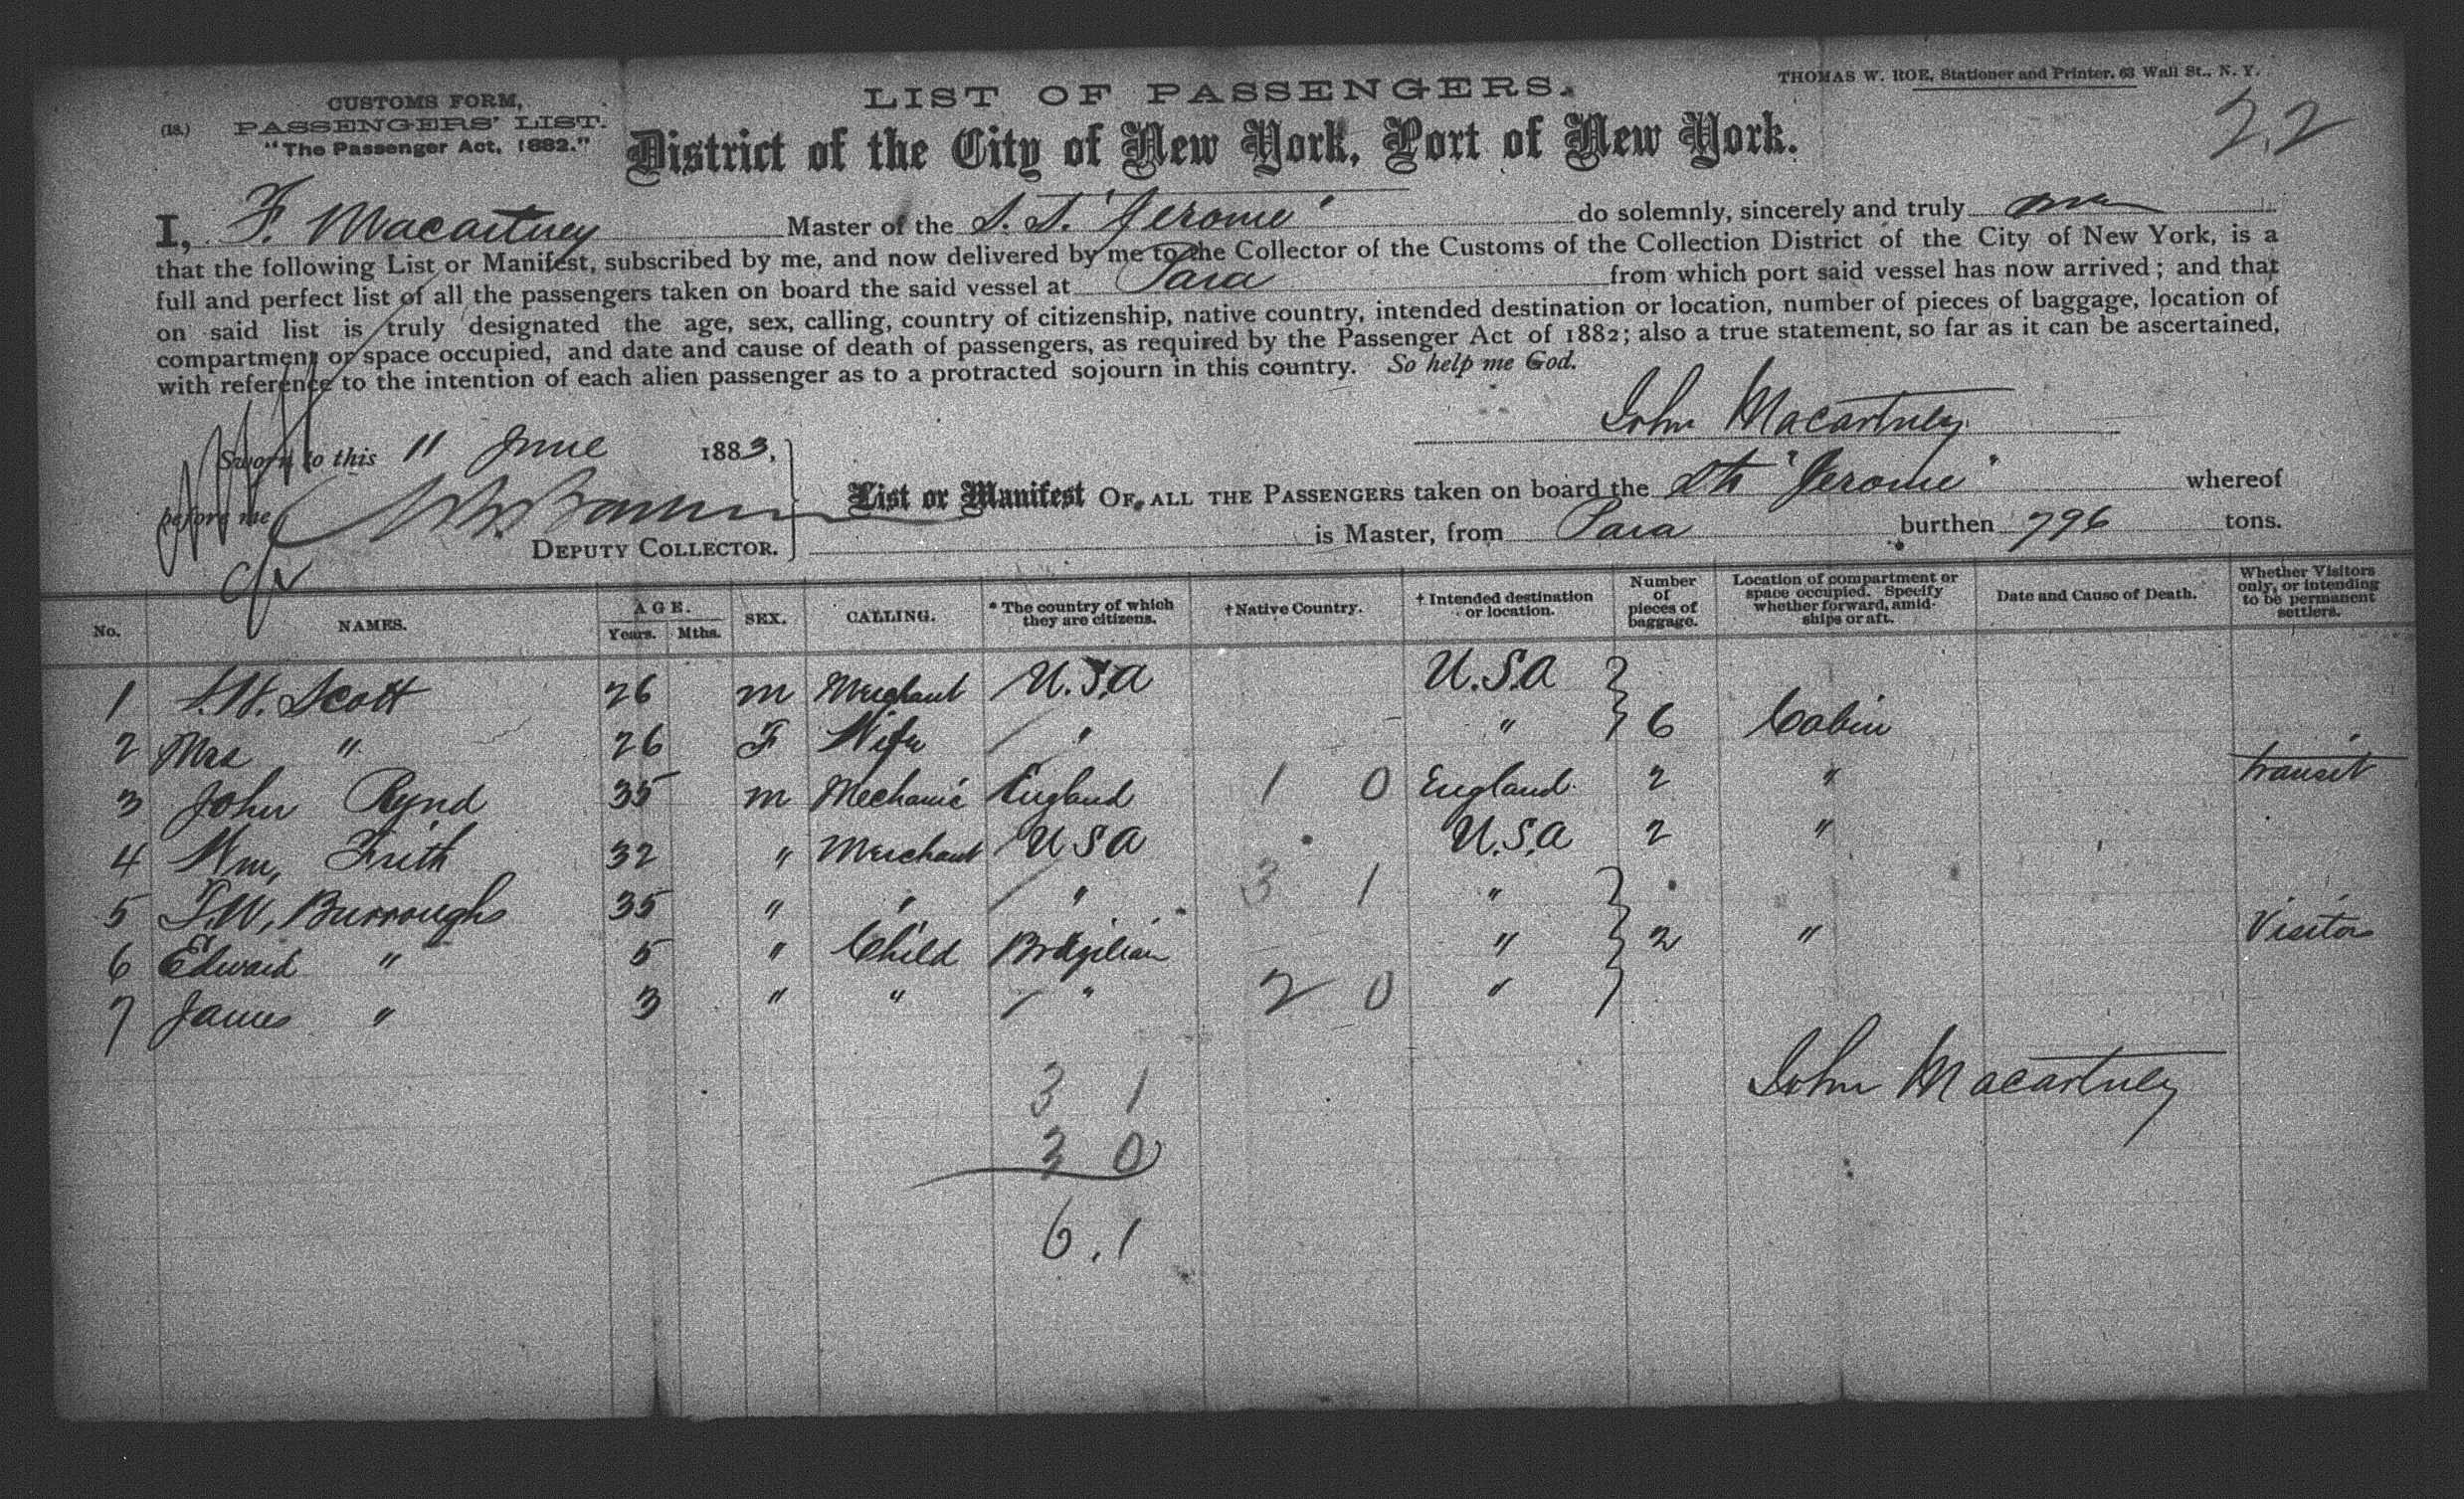 THOMAS W. ROE, Stationer and Printer, 63 Wall St., N. Y.
CUSTOMS FORM,
(18.) PASSENGERS' LIST.
"The Passenger Act, 1882."
LIST OF PASSENGERS.
District of the City of New York, Port of New York.
22
I, F. Macartney Master of the S. S. "Jerome" do solemnly, sincerely and truly
that the following List or Manifest, subscribed by me, and now delivered by me to the Collector of the Customs of the Collection District of the City of New York, is a
full and perfect list of all the passengers taken on board the said vessel at Para from which port said vessel has now arrived; and that
on said list is truly designated the age, sex, calling, country of citizenship, native country, intended destination or location, number of pieces of baggage, location of
compartment or space occupied, and date and cause of death of passengers, as required by the Passenger Act of 1882; also a true statement, so far as it can be ascertained,
with reference to the intention of each alien passenger as to a protracted sojourn in this country. So help me God.
John Macartney
Sworn to this 11 June 1883,
before me
DEPUTY COLLECTOR.
List or Manifest OF ALL THE PASSENGERS taken on board the Str "Jerome" whereof
is Master, from Para burthen 796 tons.
No. NAMES. AGE. Years. Mths. SEX. CALLING. * The country of which they are citizens. † Native Country. † Intended destination or location. Number of pieces of baggage. Location of compartment or space occupied. Specify whether forward, amidships or aft. Date and Cause of Death. Whether Visitors only, or intending to be permanent settlers.
1 Scott 26 m Merchant U.S.A U.S.A
2 Mrs " 26 F Wife " " 6 Cabin
3 John Rynd 35 m Mechanic England 1 0 England 2 " transit
4 Wm. Frith 32 " Merchant U S A U.S.A 2 "
5 T.W. Burroughs 35 " " " 3 1 "
6 Edward " 5 " Child Brazilian " 2 " Visitors
7 James " 3 " " " 2 0 "
3 1
3 0
6.1
John Macartney